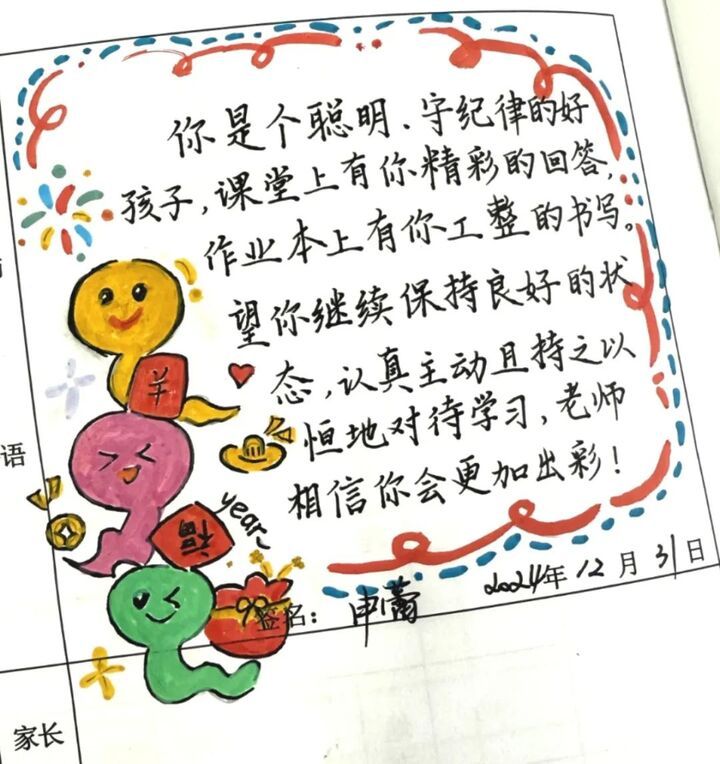 你是个聪明、守纪律的好
孩子，课堂上有你精彩的回答，
作业本上有你工整的书写。
望你继续保持良好的状
态，认真主动且持之以
恒地对待学习，老师
相信你会更加出彩！
year~
福
语
签名：申蕾
2024年12月31日
家长